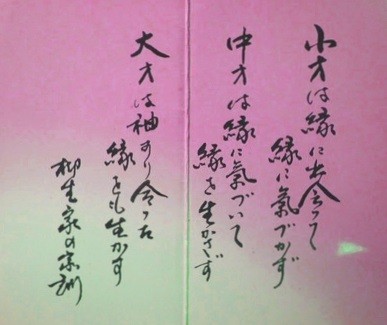 小才は縁に出会って
縁に氣づかず
中才は縁に氣づいて
縁を生かさず
大才は袖すり合った
縁をも生かす
柳生家の家訓